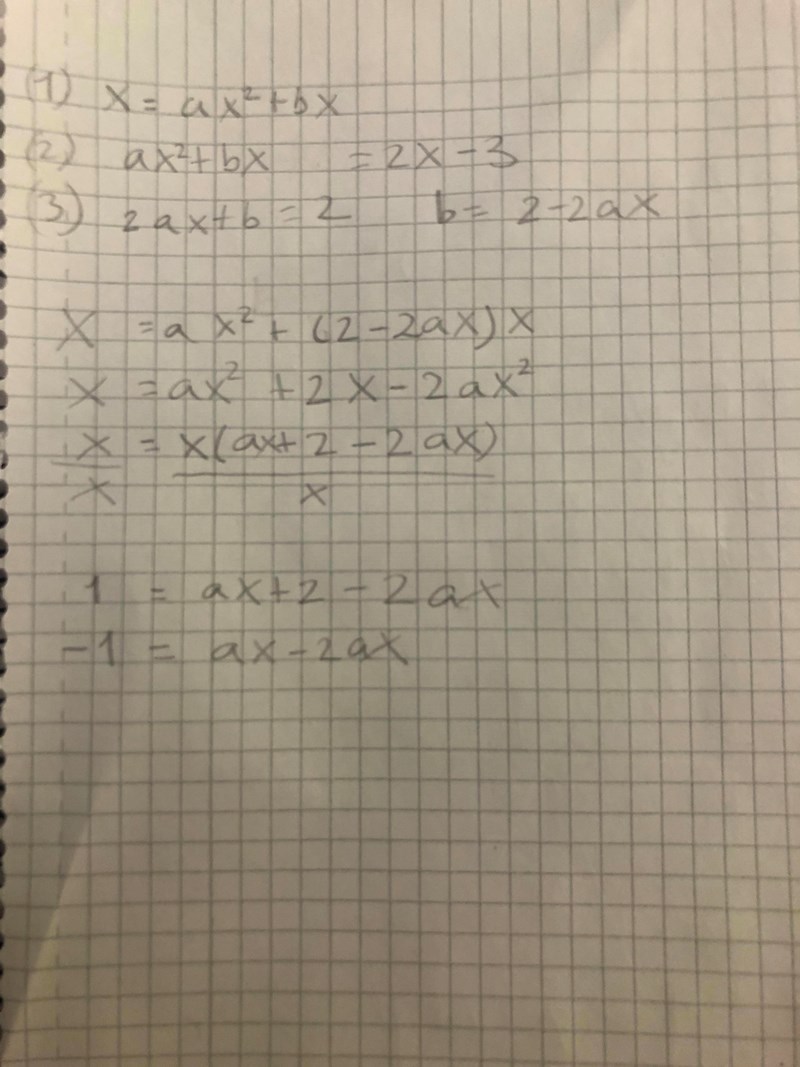 (1) x = ax²+bx
(2) ax²+bx = 2x-3
(3) 2ax+b = 2 b = 2-2ax
x = ax² + (2-2ax)x
x = ax² + 2x - 2ax²
x = x(ax+2-2ax)
x x
1 = ax+2-2ax
-1 = ax-2ax